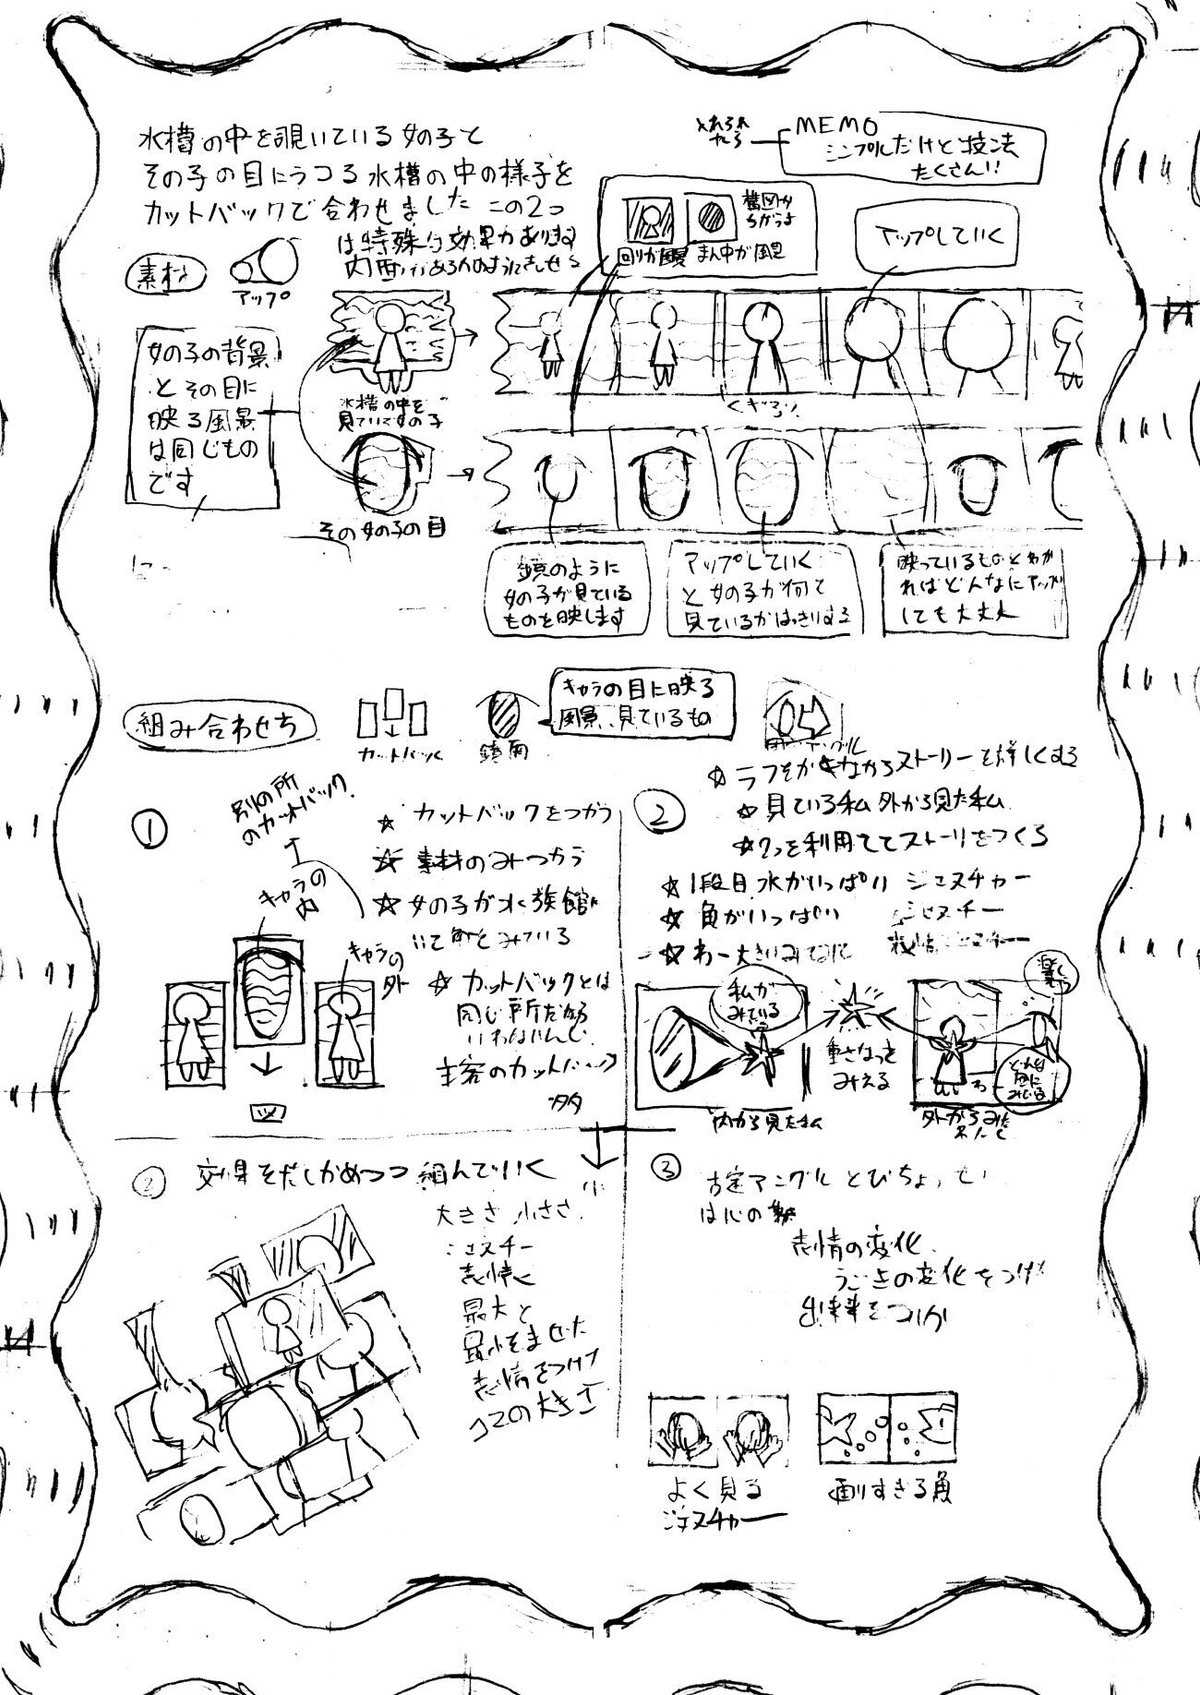 水槽の中を覗いている女の子と
その子の目にうつる水槽の中の様子を
カットバックで合わせました この2つ
は特殊な効果があります
MEMO
シンプルだけど技法
たくさん!!
素材
アップ
まん中が風景
アップしていく
女の子の背景
とその目に
映る風景
は同じもの
です
水槽の中を
見ている女の子
その女の子の目
鏡のように
女の子が見ている
ものを映します
アップしていく
と女の子が何を
見ているかはっきりする
映っているものとわか
ればどんなにアップ
しても大丈夫
組み合わせ方
カットバック
鏡面
キャラの目に映る
風景、見ているもの
①
別の所
のカットバック
キャラの
内
キャラの
外
図
☆ カットバックをつかう
☆ 素材のみつかう
☆ 女の子が水族館に
いて
☆ カットバックとは
同じ所だから
主客のカットバック
②
☆ ラフをかきながらストーリーを詳しくする
☆ 見ている私 外から見た私
☆ 2つを利用してストーリをつくる
☆ 1段目 水がいっぱい ジェスチャー
☆ 魚がいっぱい ジェスチー
☆ わー大きいみたいな
私が
みている
重さなって
みえる
楽しそう
内から見た私
外からみた
わたし
② 効果をたしかめつつ組んでいく
大きさ 小ささ
ジェスチー
表情
最大と
最小をませた
表情をつけて
コマの大きさ
③
固定アングル
表情の変化
うごきの変化をつけ
出来事を
よく見る
ジェスチャー
通りすぎる魚